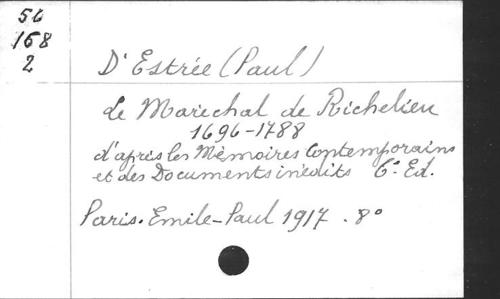 56
168
2
D'Estrée (Paul)
Le Marechal de Richelieu
1696-1788
d'apris les Mémoires Contemporains
et des Documents inédits 6e Ed.
Paris. Emile-Paul 1917. 8°